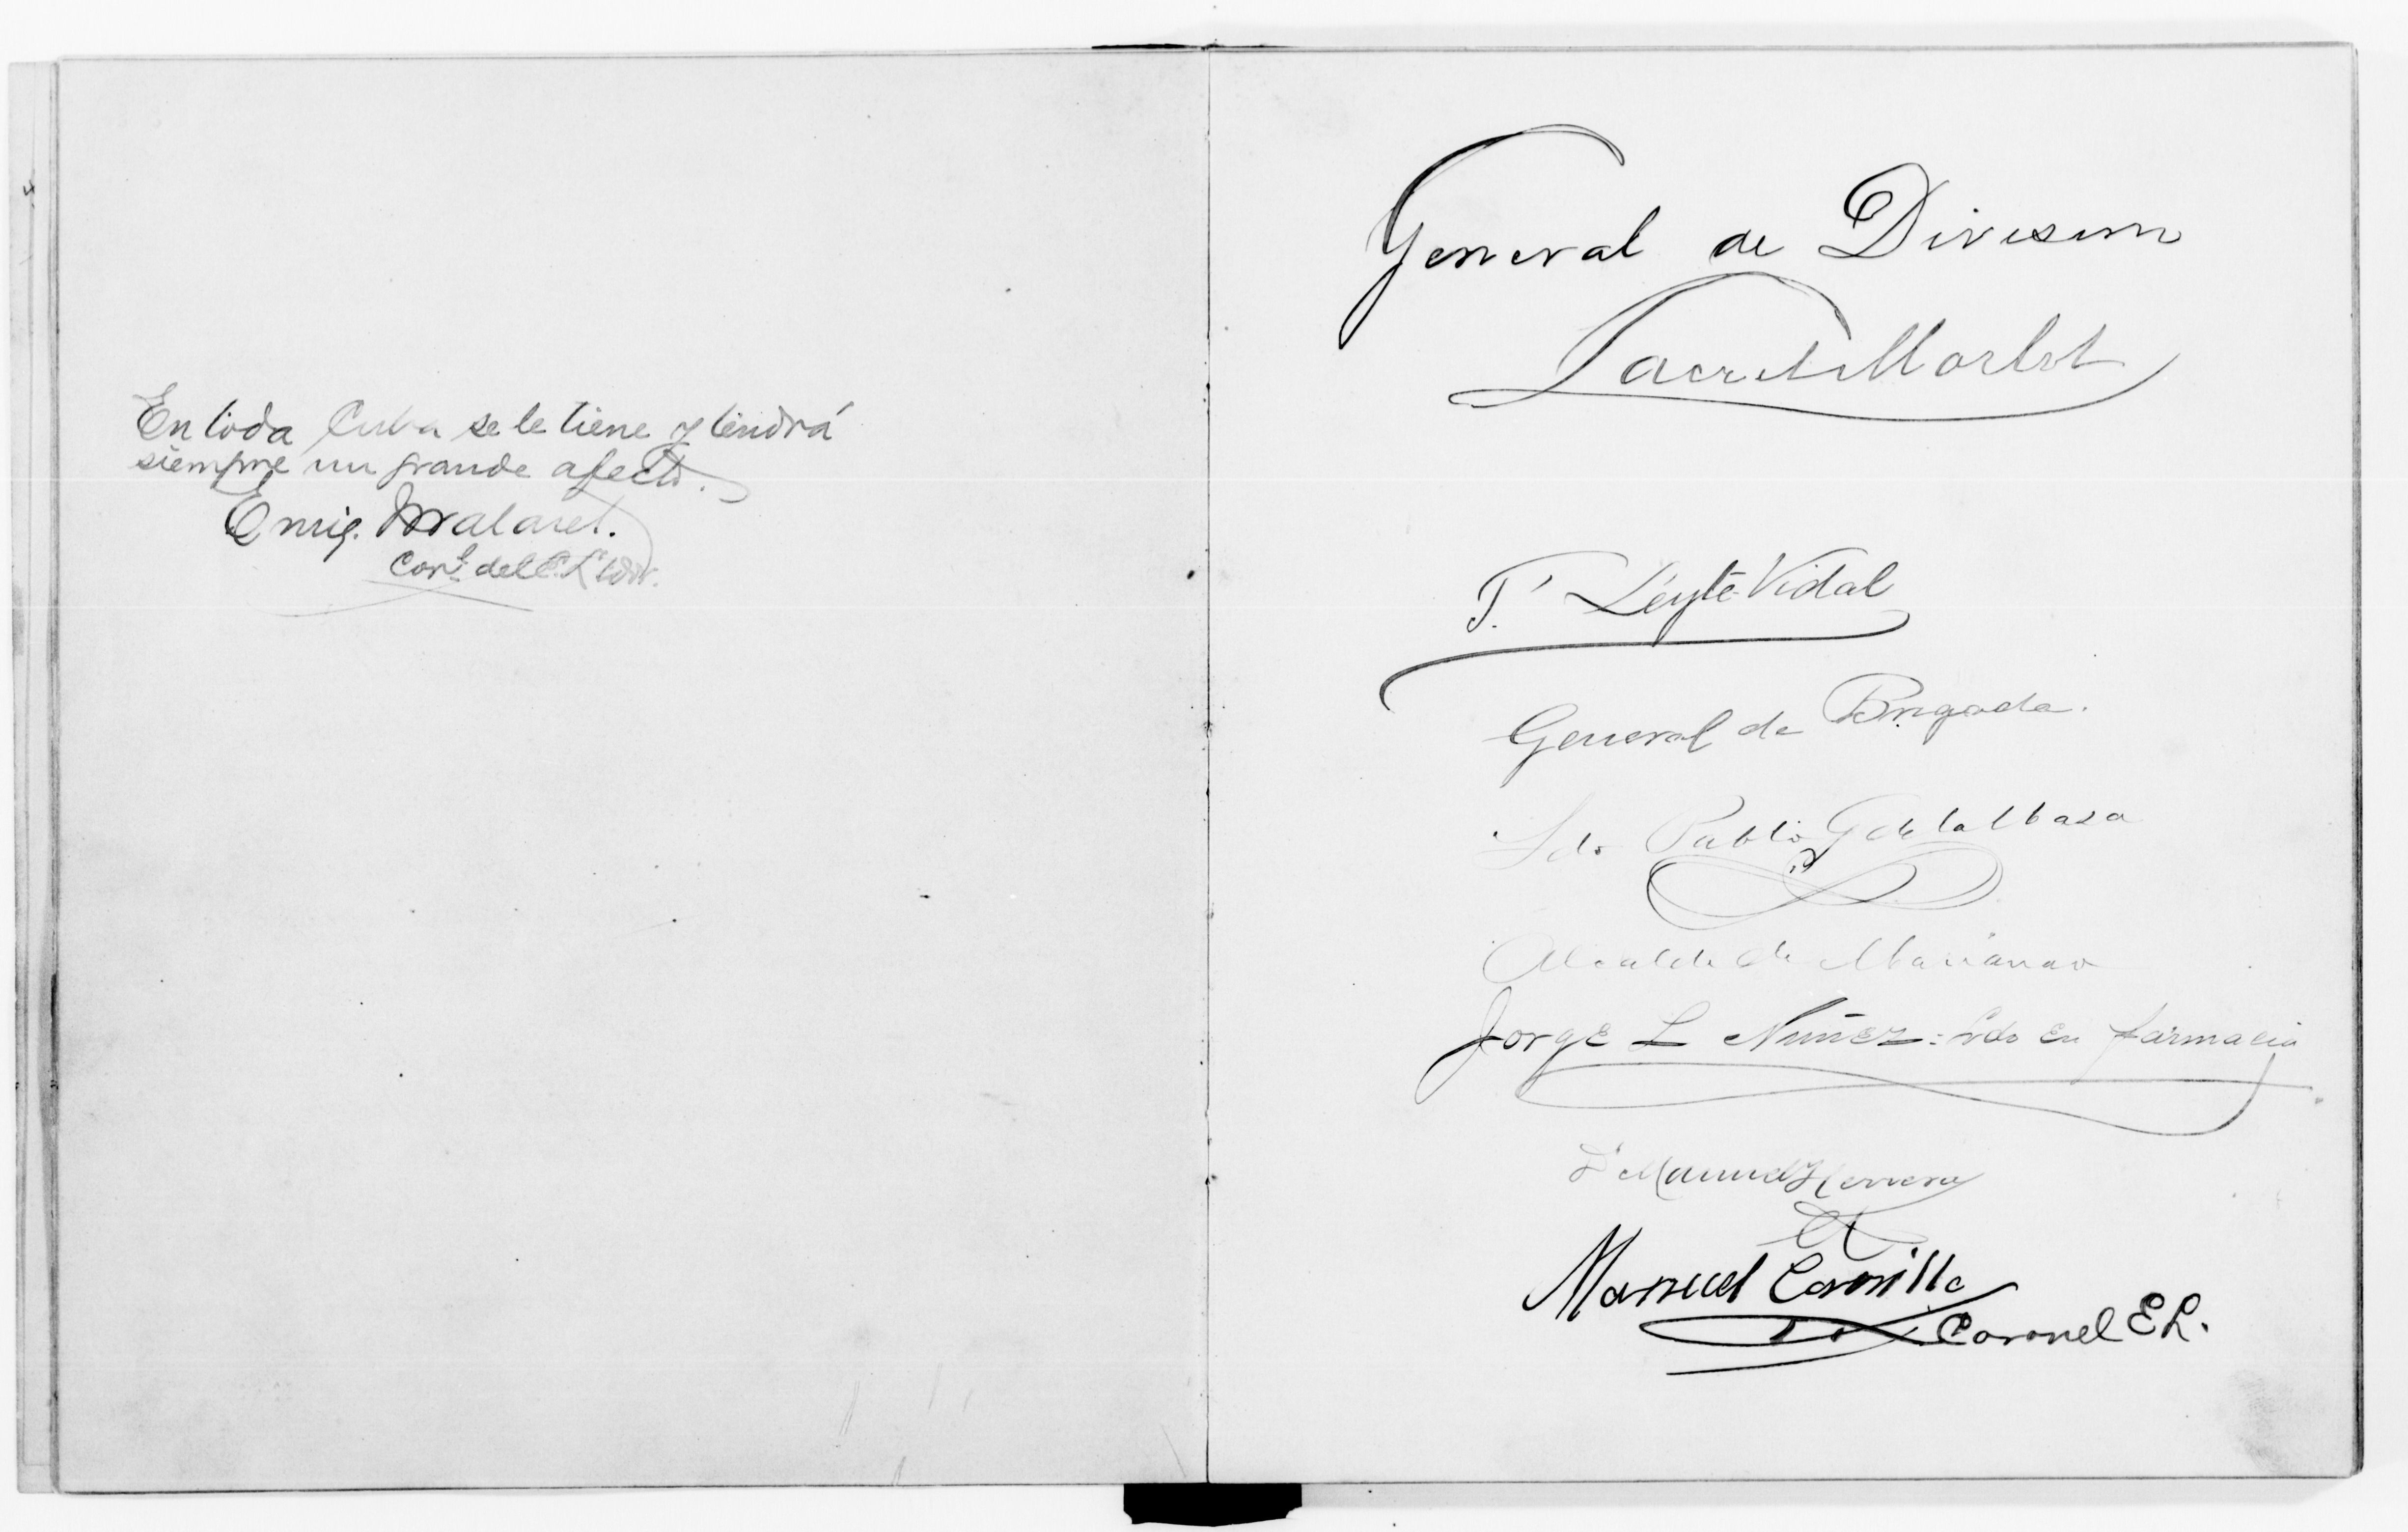 En toda Cuba se le tiene y tendrá
siempre un grande afecto.
Enriq. Malaret.
Corl. del E. L.
General de Division
Lacret Morlot
T. Leyte Vidal
General de Brigada.
Ldo Pablo G de la Maza
Alcalde de Marianao
Jorge L Nuñez: Ldo En farmacia
Dr Manuel Herrera
Manuel Carrillo
Coronel E L.